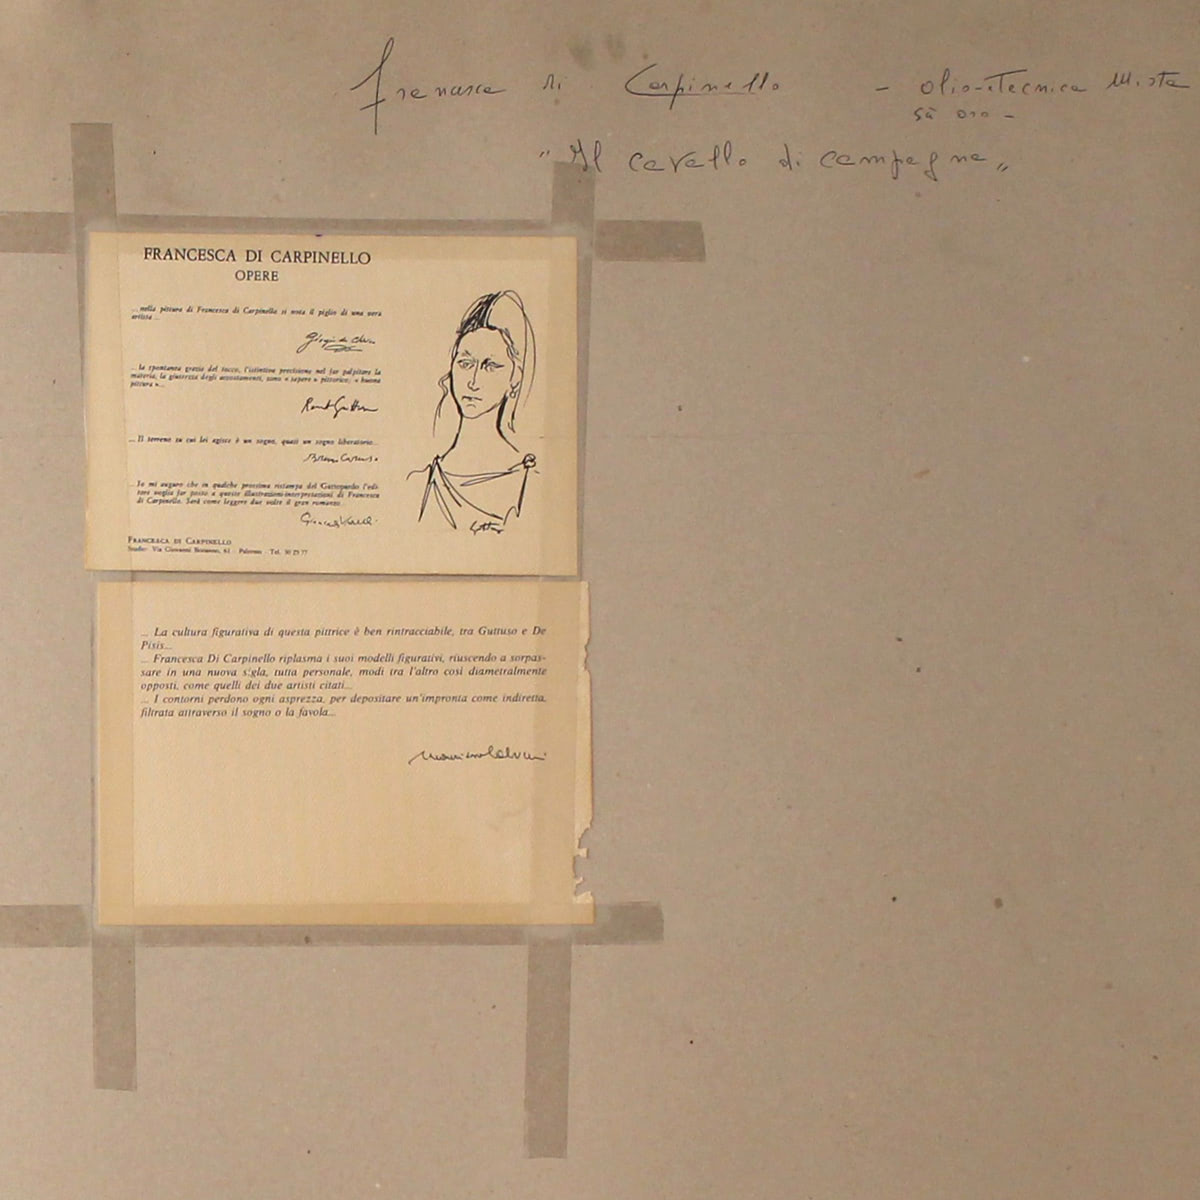 Francesca di Carpinello – olio-Tecnica Mista
su oro –
"Il cavallo di campagna"
FRANCESCA DI CARPINELLO
OPERE
...nella pittura di Francesca di Carpinello si nota il piglio di una vera
artista...
...la spontanea grazia del tocco, l'istintiva precisione nel far palpitare la
materia, la giustezza degli accostamenti, sono « sapere » pittorico, « buona
pittura »...
Renato Guttuso
... Il terreno su cui lei agisce è un sogno, quasi un sogno liberatorio...
Bruno Caruso
...Io mi auguro che in qualche prossima ristampa del Gattopardo l'edi-
tore voglia far posto a queste illustrazioni-interpretazioni di Francesca
di Carpinello. Sarà come leggere due volte il gran romanzo...
Guttuso
FRANCESCA DI CARPINELLO
Studio: Via Giovanni Bonanno, 61 - Palermo - Tel. 30 25 77
... La cultura figurativa di questa pittrice è ben rintracciabile, tra Guttuso e De
Pisis...
... Francesca Di Carpinello riplasma i suoi modelli figurativi, riuscendo a sorpas-
sare in una nuova sigla, tutta personale, modi tra l'altro così diametralmente
opposti, come quelli dei due artisti citati...
... I contorni perdono ogni asprezza, per depositare un'impronta come indiretta,
filtrata attraverso il sogno o la favola...